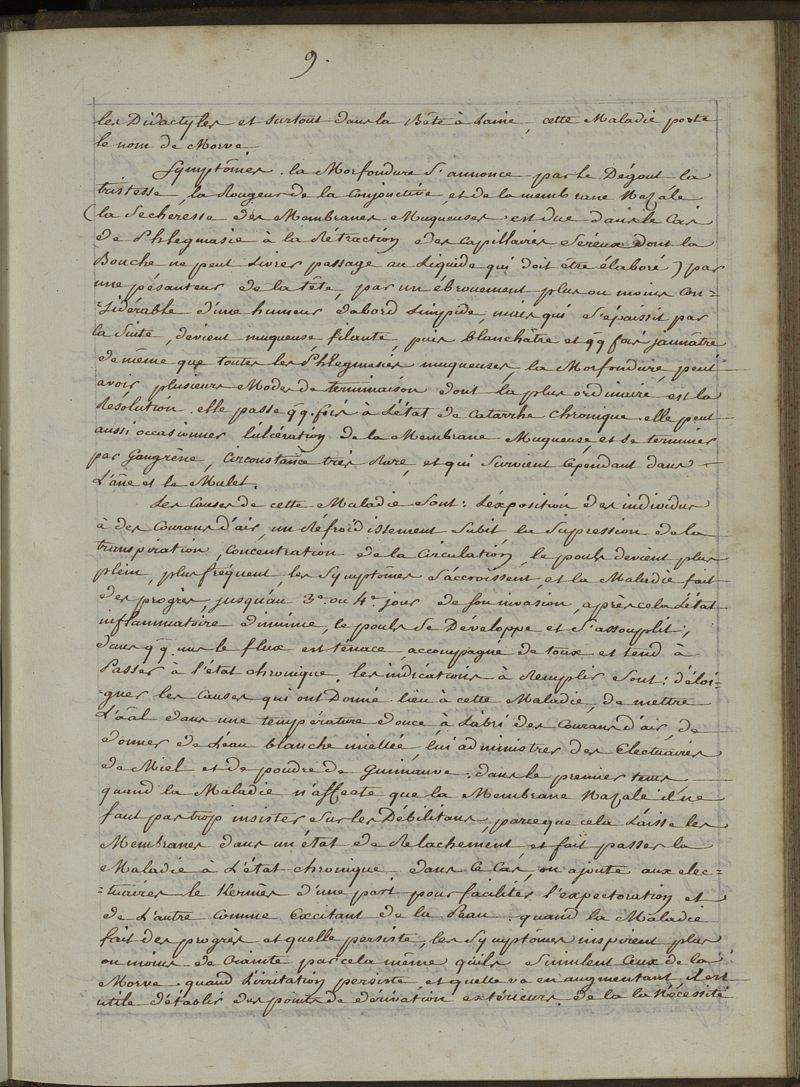 9.
les Didactyles et surtout dans la Bête à Laine, cette Maladie porte
le nom de Morve.
Symptômes. la Morfondure s'annonce par le Dégout la
tristesse, la Rougeur de la Conjonctive, et de la membrane Nazale
(la Secheresse des Membranes Muqueuses est due dans le Cas
de Phlegmasie à la Rétraction des Capillaires Séreux dont la
Bouche ne peut Livrer passage au Liquide qui doit être élaboré) par
une pésanteur de la tête, par un ébrouement plus ou moins Con=
=sidérable d'une humeur d'abord Limpide, mais qui s'épaissit par
la Suite, devient muqueuse filante, puis blanchâtre et qq fois jaunâtre
de même que toutes les Phlegmasies muqueuses, la Morfondure peut
avoir plusieurs Modes de terminaison dont la plus ordinaire est la
Résolution. elle passe qq. fois à L'état de Catarrhe chronique. elle peut
aussi occasionner l'ulcération de la Membrane Muqueuse, et se terminer
par Gangrène, Circonstance très Rare, et qui Survient Cependant dans
L'âne et le Mulet.
Les Causes de cette Maladie Sont: L'éxposition des individus
à des Courans d'air, un Réfroidissement Subit, la Supression de la
transpiration, Concentration de la Circulation, le pouls devient plus
plein, plus fréquent, les Symptômes s'accroissent, et la Maladie fait
des progrès jusqu'au 3e. ou 4e. jour de son invasion, après cela L'état
inflammatoire diminue, le pouls se Développe et s'assouplit;
dans qq. uns le flux est ténace, accompagné de toux et tend à
Passer à l'état chronique. les indications à Remplir Sont: d'éloi-
-gner les Causes qui ont Donné lieu à cette Maladie, de mettre
L'aâl dans une température douce, à L'abri des Courans d'air, de
donner de L'eau blanche miellée, lui administrer des Electuaires
de Miel et de poudre de Guimauve: dans le premier tems
quand la Maladie n'affecte que la Membrane Nazale il ne
faut pas trop insister Sur les Débilitans, parceque cela Laisse les
Membranes dans un état de Relachement, et fait passer la
Maladie à L'état chronique. dans ce Cas, on ajoute aux elec=
=tuaires le Kermès d'une part pour faciliter l'expectoration et
de L'autre Comme Excitant de la Peau. quand la Maladie
fait des progrès et quelle persiste, les Symptômes inspirent plus
ou moins de Crainte par cela même qu'ils Simulent Ceux de la
Morve. quand L'irritation persiste et quelle va en augmentant, il est
utile d'établir des points de dérivation extérieurs. de la la Nécessité